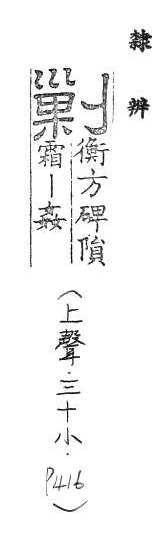 隸辨
剿
衡方碑隕
霜丨姦
(上聲.三十小.P416)